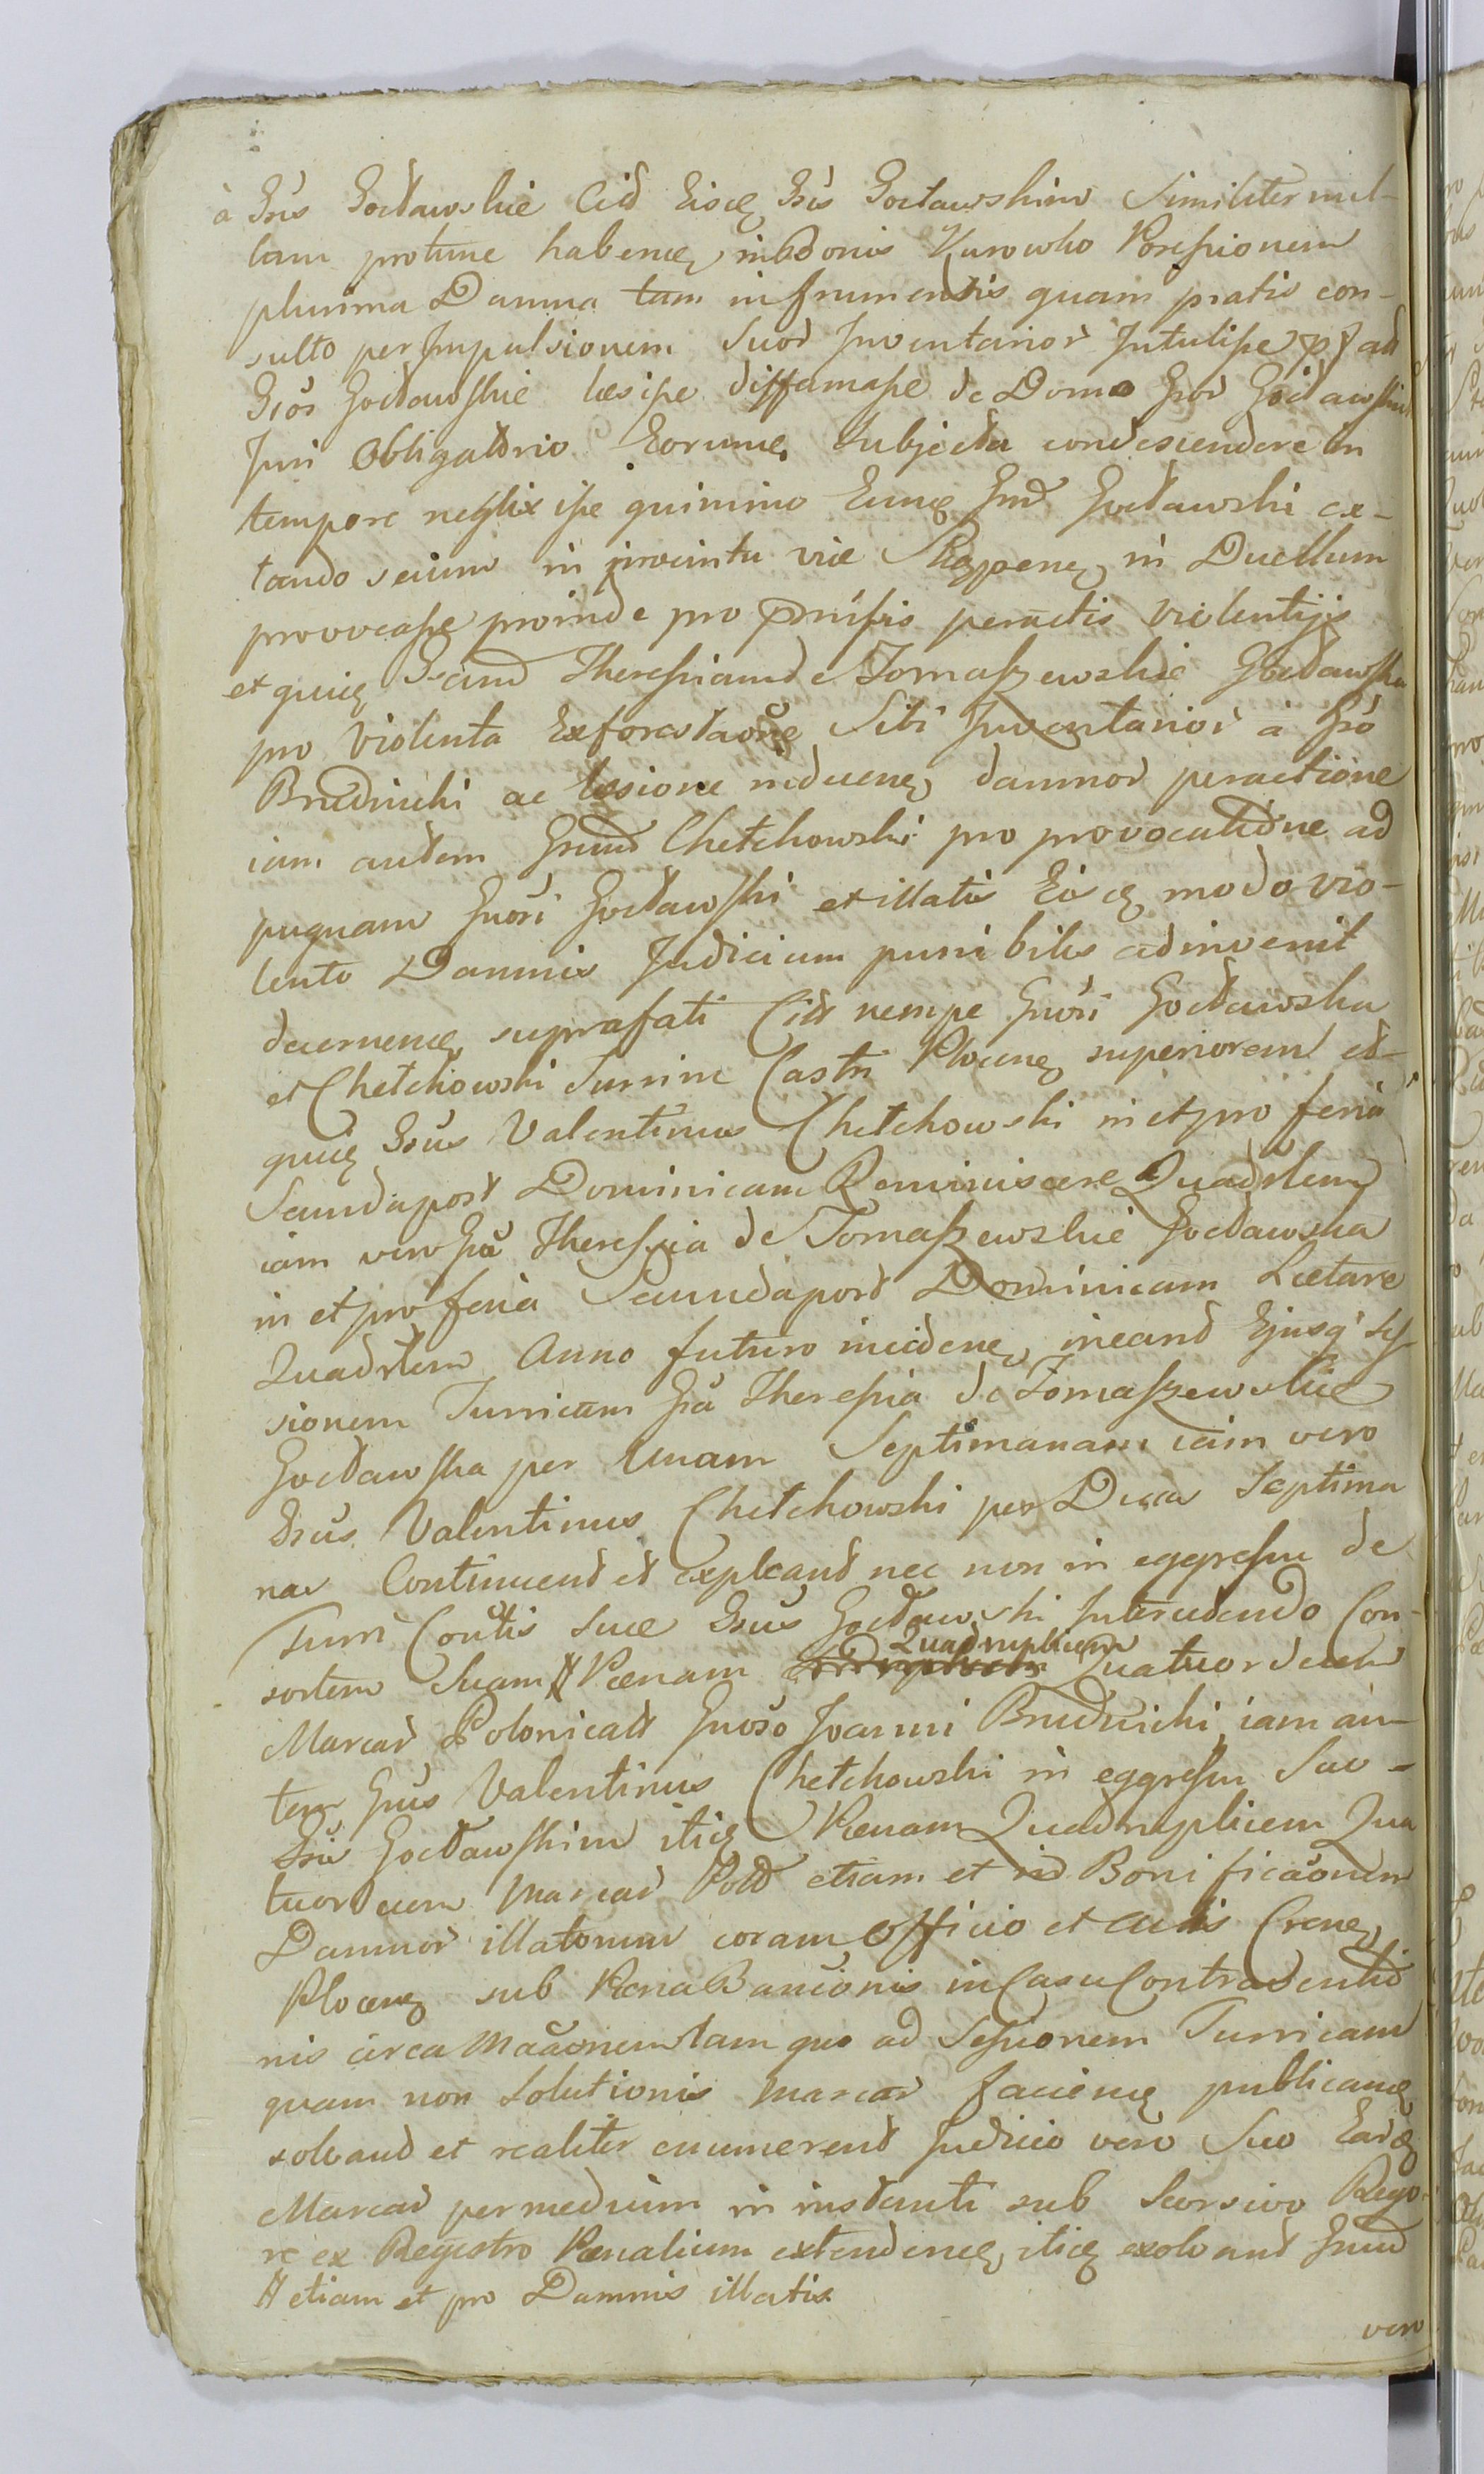 à Gris Gocławskie Citt Eisq Gris Gocławskim Similiter nul-
lam protunc habeneq in Bonis Kurowko Possessionem
plurima Damna tam in frumentis quam pratis con-
sulto per Impulsionem Suor Inventarior Intulisse
Gros Gocławskie læsisse diffamasse de Domo Gror Gocławskim
Juri Obligatorio Eorumq Subjecta condescendere in
tempore neglixisse quinimo Eumq Grd Gocławski
tando secum in procintu viæ in Duellum
provocasse proinde pro præmissis peractis violentijs
et quiq Gram Theressiam de Tomaszewskie Gocławska
pro Violenta Exforestaõne Sibi Inventarior à Gro
Brudnicki ac læsione damnor peractione
iam autem Grum Chełchowski pro provocatione ad
pugnam Gnosi Gocławski et illatis Eisq modo vio-
lento Damnis Judicium punibiles adinvenit
decerneneq suprafati Citt nempe Gnosi Gocławska
et Chełchowski Turrim Castri Plocensq superiorem et
quiq Grus Valentinus Chełchowski in et pro feria
Secunda post Dominicam Reminiscere Quadrlem
iam vero Gra Theressia de Tomaszewskie Gocławska
in et pro feria Secunda post Dominicam Lætare
Quadrlem Anno futuro incideneq ineant Ejusq Ses
sionem Turricam Gra Theressia de Tomaszewskie
Gocławska per Unam Septimanam iam vero
Grus Valentinus Chełchowski per Duas Septima
nas Continuent et expleant nec non in eggressu de
Turri Cortis Suæ Grus Gocławski Intercedendo Con-
sortem Suam # Pænam Quadruplicem Quatuordecem
Marcar Polonicatt Gnoso Joanni Brudnicki iam au-
tem Grus Valentinus Chełchowski in eggressu Suo
Gris Gocławskim itiq Pænam Quadruplicem Qua
tuordecem Marcar Poltt etiam et in Bonificaõnem
Damnor illatorum coram Officio et Actis Crensq
Plocensq sub Pæna Bannionis in Casu Contraventio
nis circa Maãonem tam quo ad Sessionem Turricam
quam non Solutionis Marcar facieneq publicaneq
solvant et realiter enumerent Judicio vero Suo Eardq
Marcar per medium in instanti sub Scorsivo Rego-
re ex Regestro Pænalium extendeneq itiq exolvant Grum
# etiam et pro Damnis illatis
vero